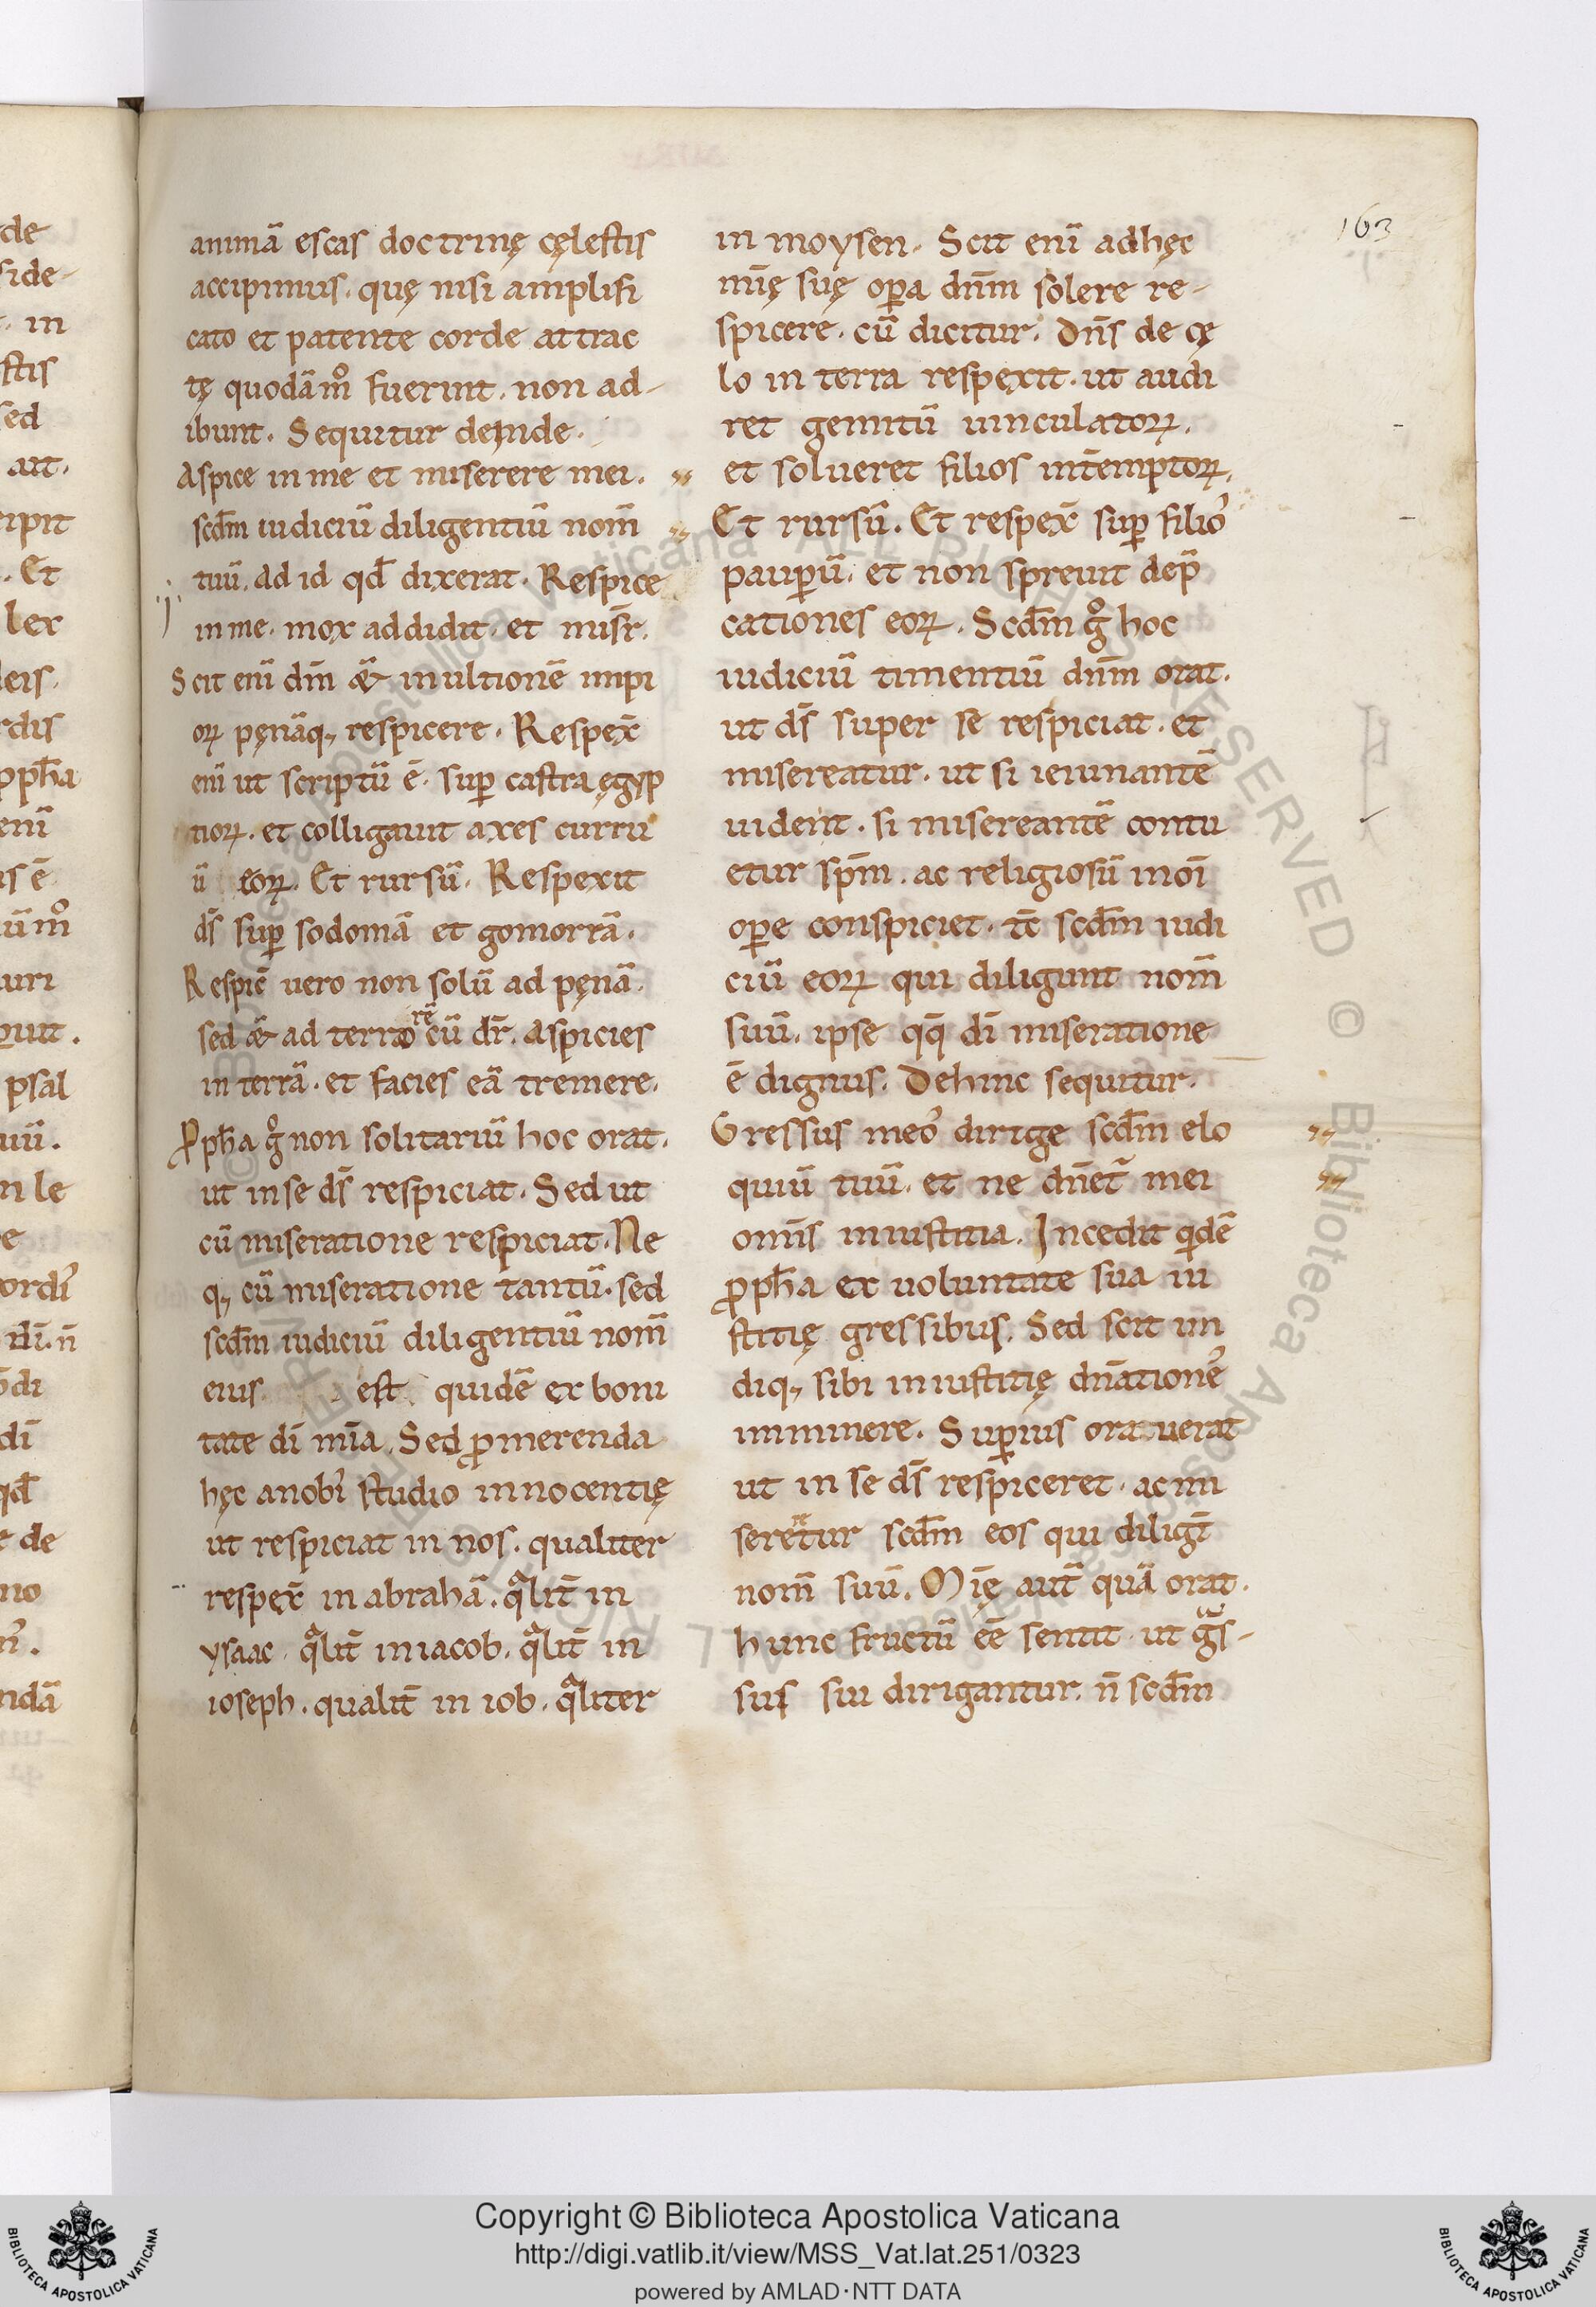 163
animā escas doctrinę cęlestis
accipimus. quę nisi amplifi
cato et patente corde attrac
tę quodāmͦ fuerint. non ad-
ibunt. Sequitur deinde.
Aspice in me et miserere mei.
scdm̄ iudiciū diligentiū nom̄
tuū. Ad id qđ dixerat. Respice
in me. mox addidit. et misr̄.
Scit enī dm̄ & in ultionē impi
oꝝ pęnāq; respicere. Respex̄
enī ut scriptū ē. suꝑ castra ęgyp
tioꝝ. et colligauit axes curru
ū eoꝝ. Et rursū. Respexit
ds̄ suꝑ sodomā et gomorrā.
Respic̄ uero non solū ad pęnā.
sed & ad terrorē cū dr̄. Aspicies
in terrā. et facies eā tremere.
Ꝓpħa gͦ non solitariū hoc orat.
ut in se ds̄ respiciat. Sed ut
cū miseratione respiciat. Ne
q; cū miseratione tantū. sed
scdm̄ iudiciū diligentiū nom̄
eius. est quidē ex boni
tate dī mīa. Sed ꝓmerenda
hęc a nobꝭ studio innocentię
ut respiciat in nos. qualiter
respex̄ in abrahā. qͣlit̄ in
ysaac. qͣlit̄ in iacob. qͣlit̄ in
ioseph. qualit̄ in iob. qͣliter
in moysen. Scit enī ad hęc
mīę suę oꝑa dn̄m solere re-
spicere. cū dicitur. Dn̄s de cę
lo in terra respexit. ut audi
ret gemitū uinculatoꝝ.
et solueret filios intēmptoꝝ.
Et rursū. Et respex̄ suꝑ filio᾽
pauꝑū. et non spreuit dep̄
cationes eoꝝ. Scdm̄ gͦ hoc
iudiciū timentiū dn̄m orat.
ut ds̄ super se respiciat. et
misereatur. ut si ieiunantē
uiderit. si misereantē contu
etur sp̄m. ac religiosū in oī
oꝑe conspiciet. tc̄ scdm̄ iudi
ciū eoꝝ qui diligunt nom̄
suū. ipse qq̄ dī miseratione
ē dignus. Dehinc sequitur.
Gressus meo᾽ dirige scdm̄ elo
quiū tuū. et ne dn̄et᷑ mei
omīs iniustitia. Incedit qͥdē
ꝓpħa ex uoluntate sua iu
stitię gressibus. Sed scit un
diq; sibi iniustitię dn̄ationē
imminere. Suꝑius orauerat
ut in se ds̄ respiceret. ac mi
sereretur scdm̄ eos qui diligt̄
nom̄ suū. Mīę aut̄ quā orat.
hunc fructū eē sentit. ut gͣs-
sus sui dirigantur. n̄ scdm̄
Copyright © Biblioteca Apostolica Vaticana
http://digi.vatlib.it/view/MSS_Vat.lat.251/0323
powered by AMLAD·NTT DATA